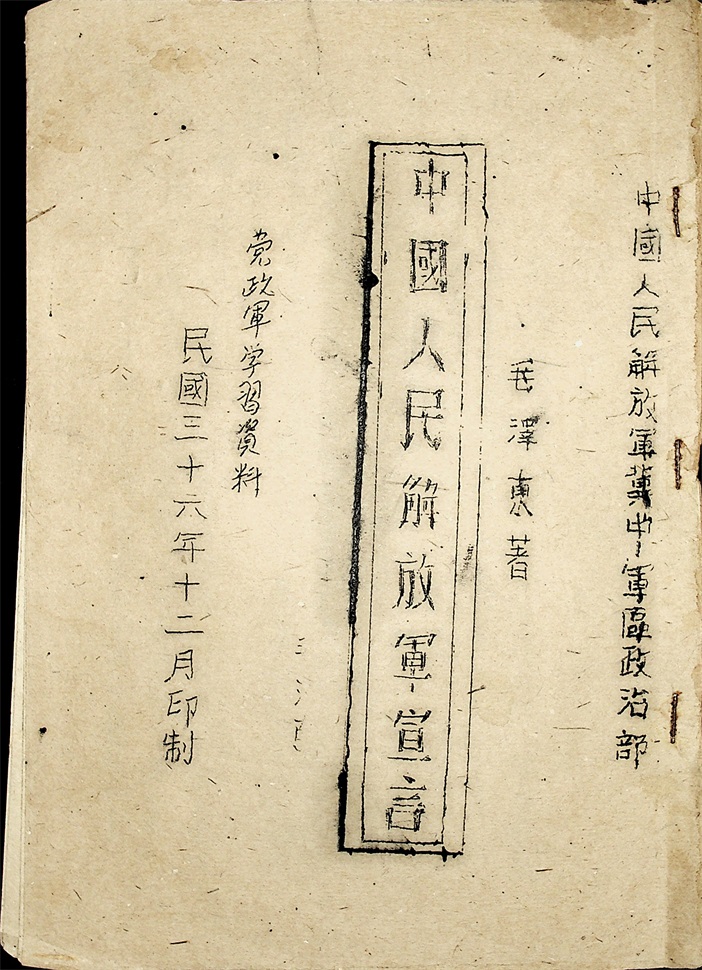 中國人民解放軍冀中軍區政治部
毛澤東著
中國人民解放軍宣言
党政軍学習資料
民國三十六年十二月印制